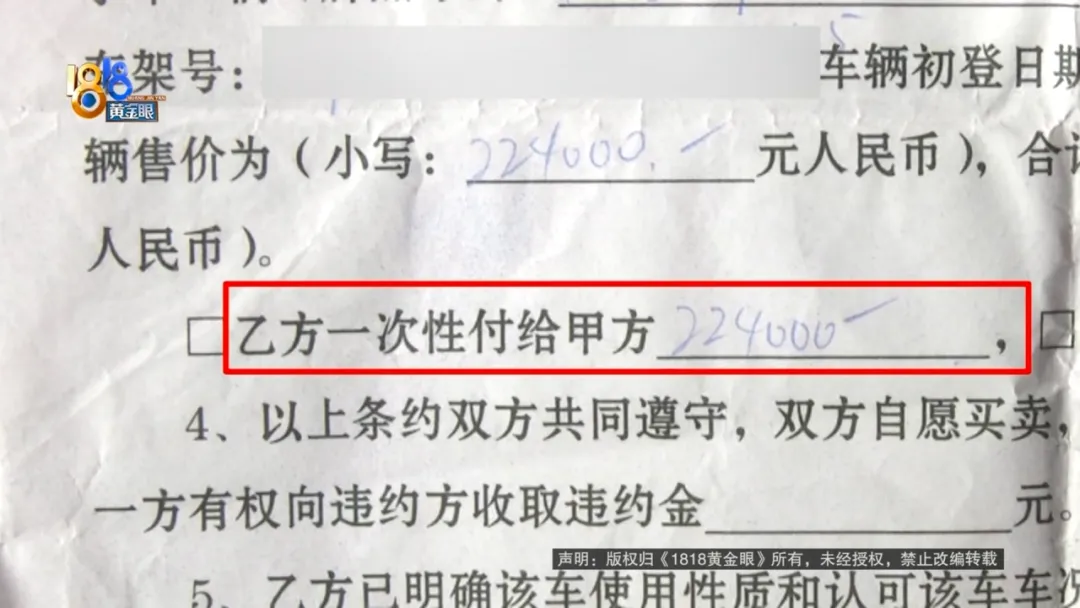 车架号: 车辆初登日期
1818
黄金眼
辆售价为(小写: 224000. 元人民币), 合计
人民币)。
□乙方一次性付给甲方 224000 , □
4、以上条约双方共同遵守, 双方自愿买卖,
一方有权向违约方收取违约金 元。
声明: 版权归《1818黄金眼》所有, 未经授权, 禁止改编转载
5、乙方已明确该车使用性质和认可该车车况